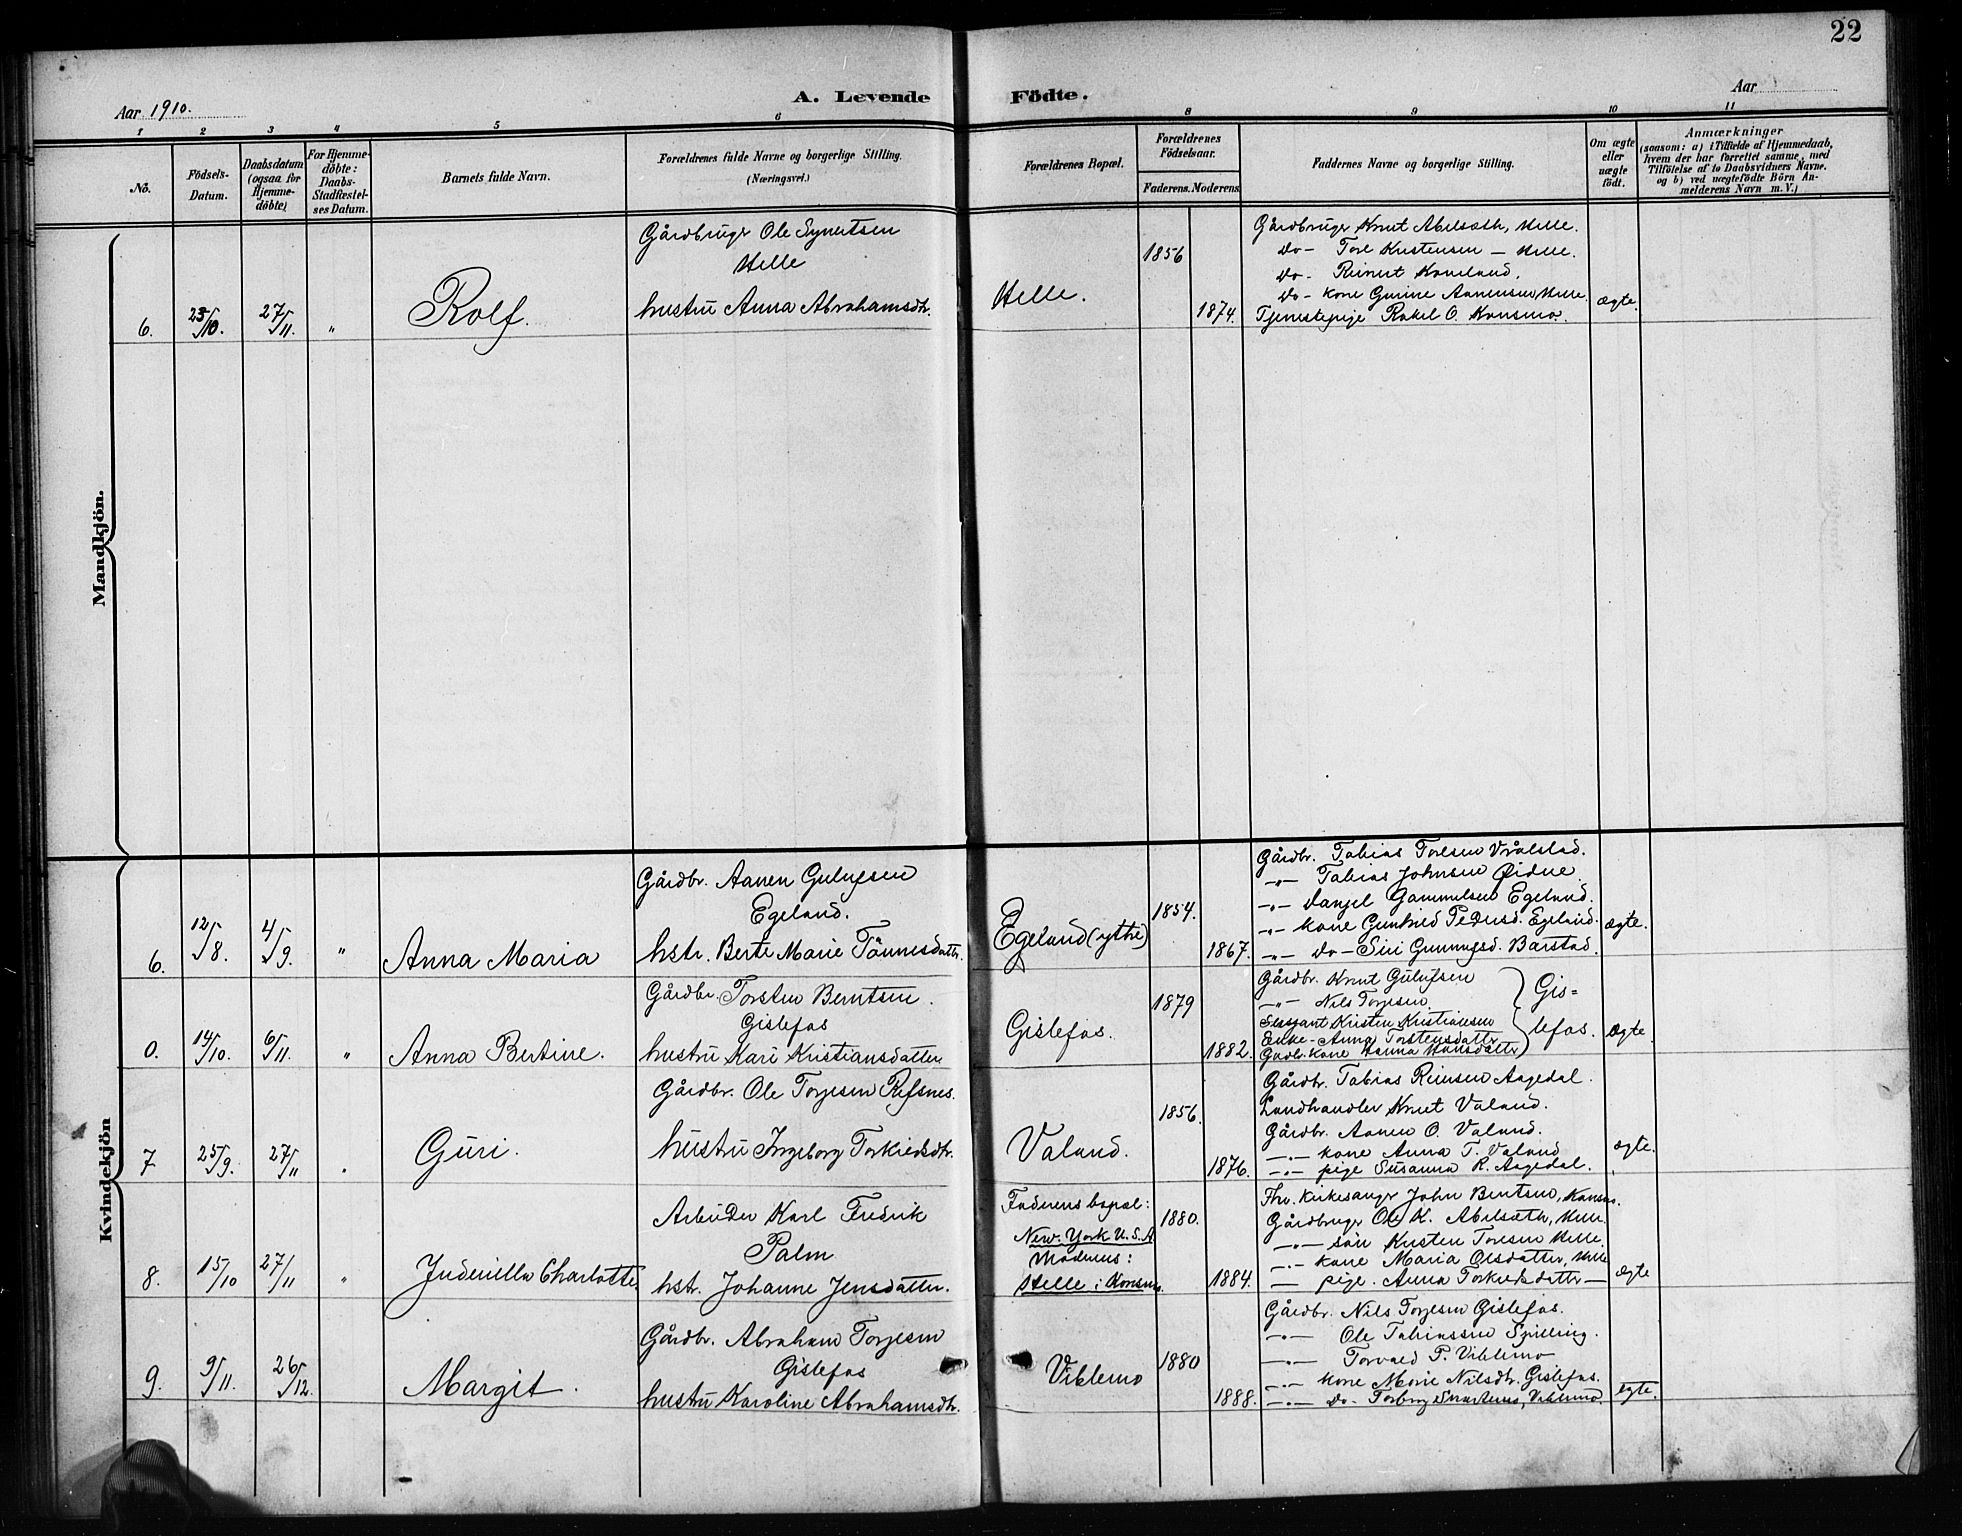 22
Aar 1910.
A. Levende Födte.
Aar
1 2 3 4 5 6 8 9 10 11
No.
Födsels-Datum.
Daabsdatum (ogsaa for Hjemme-döbte)
For Hjemme-döbte: Daabs-Stadfæstel-ses Datum.
Barnets fulde Navn.
Forældrenes fulde Navne og borgerlige Stilling. (Næringsvei.)
Forældrenes Bopæl.
Forældrenes Födselsaar.
Faderens. Moderens.
Faddernes Navne og borgerlige Stilling.
Om ægte eller uægte födt.
Anmærkninger
(saasom: a) i Tilfælde af Hjemmedaab,
hvem der har forrettet samme, med
Tilföielse af to Daabsvidners Navne,
og b) ved uægtefödte Börn An-
melderens Navn m. V.)
Mandkjön.
6. 23/10. 27/11. " Rolf.
Gårdbruger Ole Syvertsen
Helle
hustru Anna Abrahamsdtr.
Helle.
1856
1874.
Gårdbruger Knut Abelsæth, Helle.
Do- Tore Kristensen - Helle.
Do- Reinert Konsland.
Do- kone Gurine Aanensen Helle.
Tjenestepige Rakel O. Konsmo.
ægte.
Kvindekjön
6. 12/8. 4/9. " Anna Maria
Gårdbr. Aanen Gulufsen
Egeland.
hstr. Berte Marie Tönnesdatter.
Egeland (ytre)
1854.
1867.
Gårdbr. Tobias Toresen Vrålstad.
-"- Tobias Johnsen Öidne
-"- Danjel Gammelsen Egeland.
-"- kone Gunhild Pedersd. Egeland.
-"- Do- Siri Gunnufsd. Barstad.
ægte.
0. 14/10. 6/11. " Anna Bertine.
Gårdbr. Torsten Berntsen.
Gislefos
hustru Kari Kristiansdatter
Gislefos.
1879
1882.
Gårdbr. Knut Gulufsen
-"- Nils Torjesen
Sersjant Kristen Kristiansen
Enke- Anna Torstensdattr
Gådbr. kone Hanna Hansdatter
Gis=
lefos.
ægte.
7 25/9. 27/11 " Guri.
Gårdbr. Ole Torjesen Refsnes.
hustru Ingeborg Torkielsdtr.
Valand.
1856.
1876.
Gårdbr. Tobias Reiersen Aagedal.
Landhandler Knut Valand.
Gårdbr. Aanen O. Valand.
-"- kone Anna T. Valand
-"- pige Susanna R. Aagedal.
ægte.
8. 15/10 27/11 " Charlotte
Arbeider Karl Fredrik
Palm
hst. Johanne Jensdatter.
Faderens bopæl:
New-York U.S.A
Moderens:
Helle i Konsmo.
1880.
1884.
Fhv. kirkesanger John Bentsen, Konsmo.
Gårdbruger Ole K. Abelsæth, Helle.
-"- sön Kristen Toresen Helle.
-"- kone Maria Olsdatter, Helle
- pige. Anna Torkielsdatter -
ægte
9. 9/11. 26/12. Margit.
Gårdbr. Abraham Torjesen
Gislefos
hustru Karoline Abrahamsdtr.
Viblemo
1880
1888.
Gårdbr. Nils Torjesen Gislefos.
-"- Ole Tobiassen Spilling.
-"- Torvald P. Viblemo
-"- kone Marie Nilsdtr. Gislefos.
-"- Do- Torborg Viblemo.
ægte.